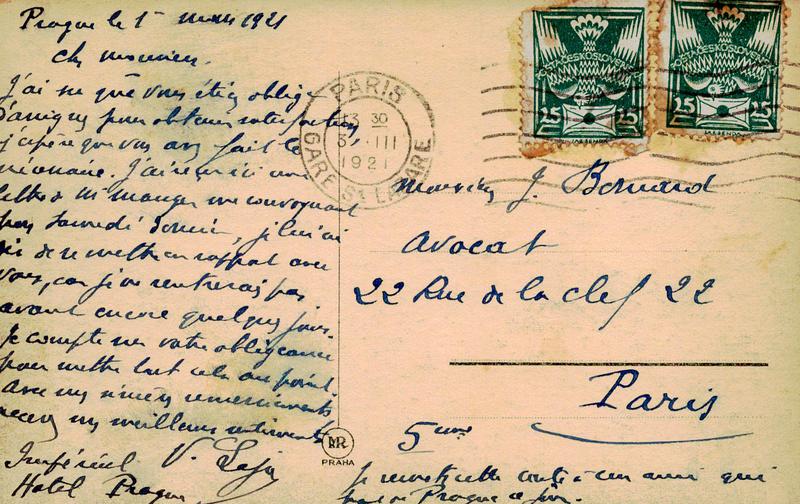 Prague le 1er mars 1921
Ch monsieur.
J'ai su que vous étiez oblig
d'assigner pour obtenir satisfaction
j'espère que vous avez fait le
nécessaire. J'ai reçu ici une
lettre de M. me convoquant
pour Samedi dernier, je lui ai
dit de se mettre en rapport avec
vous, car je ne rentrerai pas
avant encore quelques jours.
Je compte sur votre obligeance
pour mettre tout cela au point
Avec mes sincères remerciements
recevez mes meilleurs sentiments
V.
Hotel Prague
PARIS
13 30
3 III
1921
GARE St LAZARE
POŠTA ČESKOSLOVENSKÁ
25 25
POŠTA ČESKOSLOVENSKÁ
25 25
Monsieur J. Bernard
Avocat
22 Rue de la clef 22
Paris
MR
PRAHA
5eme
Je remets cette carte à un ami qui
Prague ce jour.